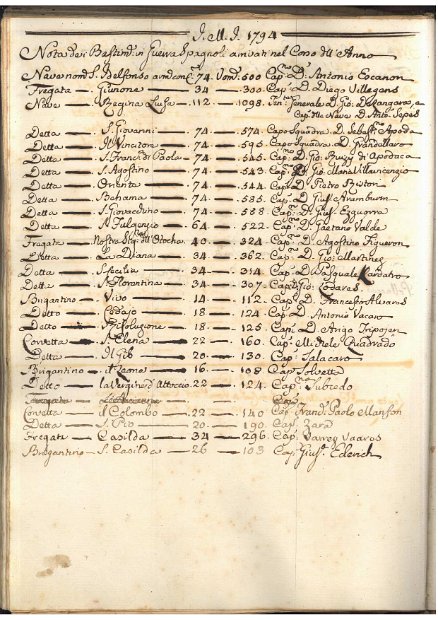 J. M. J. 1794
Nota dei Bastimti in Guerra Spagnoli arrivati nel Corso dell' Anno
Nave nomta S. Delfonso 74. Uomi 500 Capno Dn Antonio Escanon
Fregata — Giunone — 34 — 300. Capno Dn Diego Villegans
Nave — Regina Luisa — 112 — 1098. Tente Generale D. Gio: de Langarao, e
Capno della Nave D. Anto
Detta — S. Giovanni — 74 — 574. Capo Squadra D. Sebastno Apoda
Detta — Il Vincitore — 74 — 595. Capo Squadra D.
Detta — S. Franco di Paola — 74 — 545. Capno D. Gio: di Apodaca
Detta — S. Agostino — 74 — 543 D. Gio: Maria Villancenzio
Detta — Orienta — 74 — 544 Capno D. Pietro Riston
Detta — Bahama — 74 — 585. Capno D. Giuse Aramburu
Detta — S. Gioacchino — 74 — 588. Capno D. Giuse Ezquerra
Detta — S. Fulgenzio — 64 — 522. Capno D. Gaetano Valde
Fregata — Nostra Sigra del — 40 — 324 Capno D. Agostino Figueron
Detta — La Diana — 34 — 362. Capno D. Gio: Martines
Detta — S. Cecilia — 34 — 314 Capno D. Pasquale
Detta — S. Florentina — 34 — 307. Capno D. Gio:
Brigantino — Vivo — 14 — 112. Capno D. Francesco Alvans
Detto — — 18 — 124 Capno D. Antonio Vacaro
Detto — Risoluzione — 18 — 125. Capno D. Ango
Corvetta — S. Elena — 22 — 160. Capno Michele Quadrado
Detta — Il Gib — 20 — 130. Capno Salacaro
Brigantino — il Leone — 16 — 108 Capno Solvetta
Detto — la Vergine d' — 22 — 124. Capno Tubredo
Capno
Corvetta — il Colombo — 22 — 140 Capno Frando Paolo Manfon
Detta — S. Pio — 20 — 190. Capno Zara
Fregata — Casilda — 34 — 296. Capno Varreg Vaaros
Brigantino — S. Casilda — 26 — 103 Capno Giuse Ederich